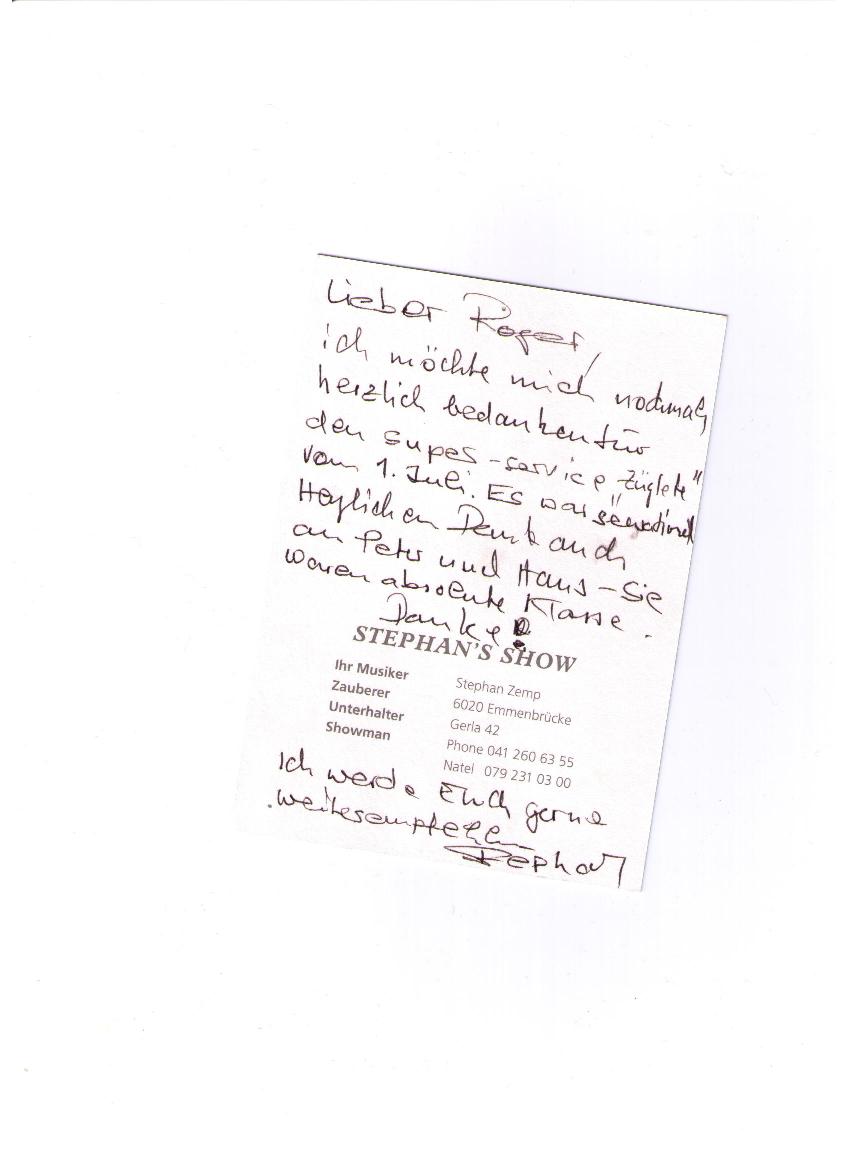 Lieber Roger,
ich möchte mich nochmals
herzlich bedanken für
den super-service "Züglete"
vom 1. Juli. Es war sensationell
Herzlichen Dank auch
an Peter und Hans – Sie
waren absolute Klasse.
Danke!
STEPHAN'S SHOW
Ihr Musiker
Zauberer
Unterhalter
Showman
Stephan Zemp
6020 Emmenbrücke
Gerla 42
Phone 041 260 63 55
Natel 079 231 03 00
Ich werde Euch gerne
weiterempfehlen
Stephan